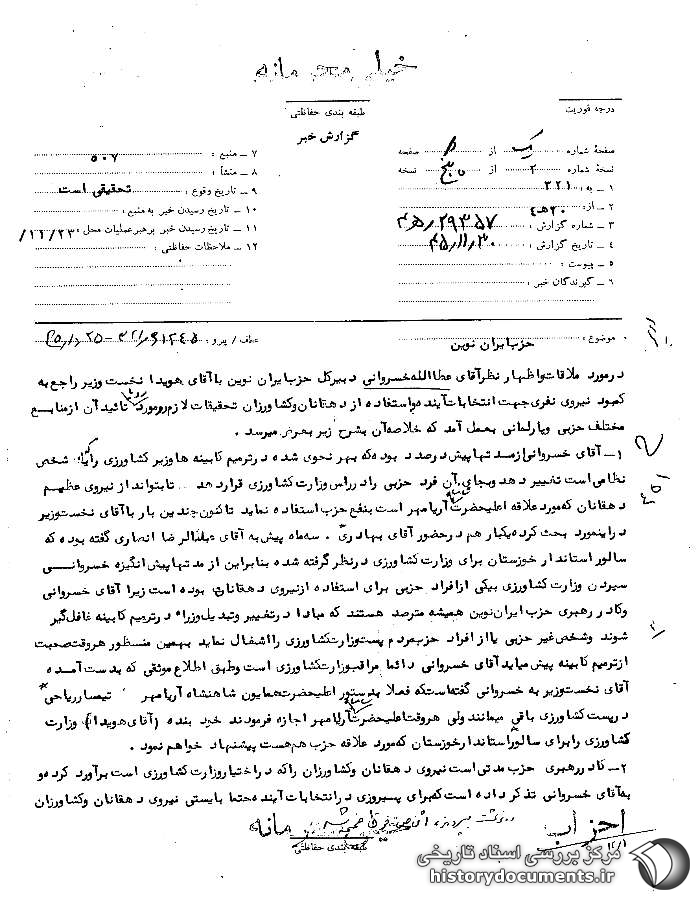 خیلی محرمانه
طبقه بندی حفاظتی
گزارش خبر
درجه فوریت
صفحهٔ شماره یک از صفحه
نسخهٔ شماره ۲ از پنج نسخه
۱ ـ به : ۳۲۱
۲ ـ از : ۲۰ ه‍ ۴
۳ ـ شماره گزارش : ۲۹۳۵۷ / ه‍ ۴
۴ ـ تاریخ گزارش : ۴۵/۱۱/۳۰
۵ ـ پیوست :
۶ ـ گیرندگان خبر :
۷ ـ منبع : ۵۰۷
۸ ـ منشأ :
۹ ـ تاریخ وقوع : تحقیقی است
۱۰ ـ تاریخ رسیدن خبر به منبع :
۱۱ ـ تاریخ رسیدن خبر برهبر عملیات محل : ۱۱/۲۳/
۱۲ ـ ملاحظات حفاظتی :
موضوع : حزب ایران نوین
عطف / پیرو :
در مورد ملاقات و اظهار نظر آقای عطاالله خسروانی دبیرکل حزب ایران نوین با آقای هویدا نخست وزیر راجع به
کمبود نیروی نفری جهت انتخابات آینده و استفاده از دهقانان و کشاورزان تحقیقات لازم و روی مورد تائید آن از منابع
مختلف حزبی و پارلمانی بعمل آمد که خلاصه آن بشرح زیر بعرض میرسد .
۱ ـ آقای خسروانی از مدتها پیش درصدد بوده که بهر نحوی شده در ترمیم کابینه ها وزیر کشاورزی را که شخصی
نظامی است تغییر دهد و بجای آن فرد حزبی را در راس وزارت کشاورزی قرار دهد .. تا بتواند از نیروی عظیم
دهقانان که مورد علاقه اعلیحضرت آریامهر است بنفع حزب استفاده نماید تاکنون چندین بار با آقای نخست وزیر
در اینمورد بحث کرده یکبار هم در حضور آقای بهادری . سه ماه پیش به آقای عبدالرضا انصاری گفته بوده که
سالور استاندار خوزستان برای وزارت کشاورزی در نظر گرفته شده بنابراین از مدتها پیش انگیزه خسروانی
سپردن وزارت کشاورزی بیکی از افراد حزبی برای استفاده از نیروی دهقانان بوده است زیرا آقای خسروانی
و کادر رهبری حزب ایران نوین همیشه مترصد هستند که مبادا در تغییر و تبدیل وزراء در ترمیم کابینه غافل گیر
شوند و شخص غیر حزبی یا از افراد حزب مردم پست وزارت کشاورزی را اشغال نماید بهمین منظور هر وقت صحبت
از ترمیم کابینه پیش میاید آقای خسروانی دائما مراقب وزارت کشاورزی است و طبق اطلاع موثقی که بدست آمده
آقای نخست وزیر به خسروانی گفته است که فعلا بدستور اعلیحضرت همایون شاهنشاه آریامهر تیمسار ریاحی
در پست کشاورزی باقی میمانند ولی هر وقت اعلیحضرت آریامهر اجازه فرمودند خود بنده (آقای هویدا) وزارت
کشاورزی را برای سالور استاندار خوزستان که مورد علاقه حزب هم هست پیشنهاد خواهم نمود .
۲ ـ کادر رهبری حزب مدتی است نیروی دهقانان و کشاورزان را که در اختیار وزارت کشاورزی است برآورد کرده و
به آقای خسروانی تذکر داده است که برای پیروزی در انتخابات آینده حتما بایستی نیروی دهقانان و کشاورزان
احزاب
طبقه بندی حفاظتی
مرکز بررسی اسناد تاریخی
historydocuments.ir